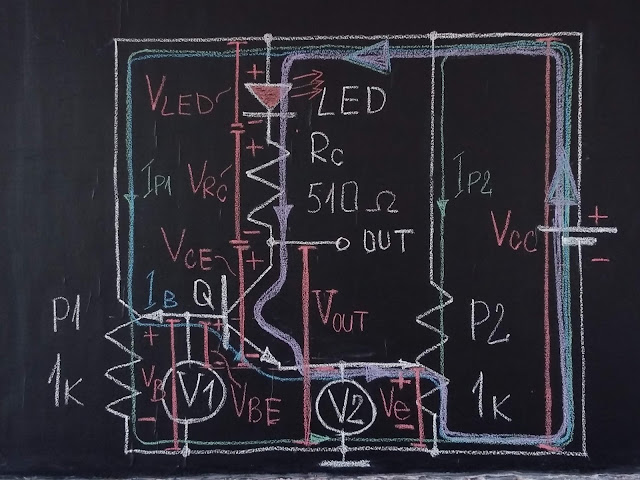 +
V_LED
LED
-
R_C
+
I_P1
V_RC
510 Ω
I_P2
-
V_CE
+
OUT
V_CC
+
-
I_B
Q
P1
V_OUT
P2
+
+
-
-
1K
V_B
V1
V_BE
V2
+
V_e
-
1K
-